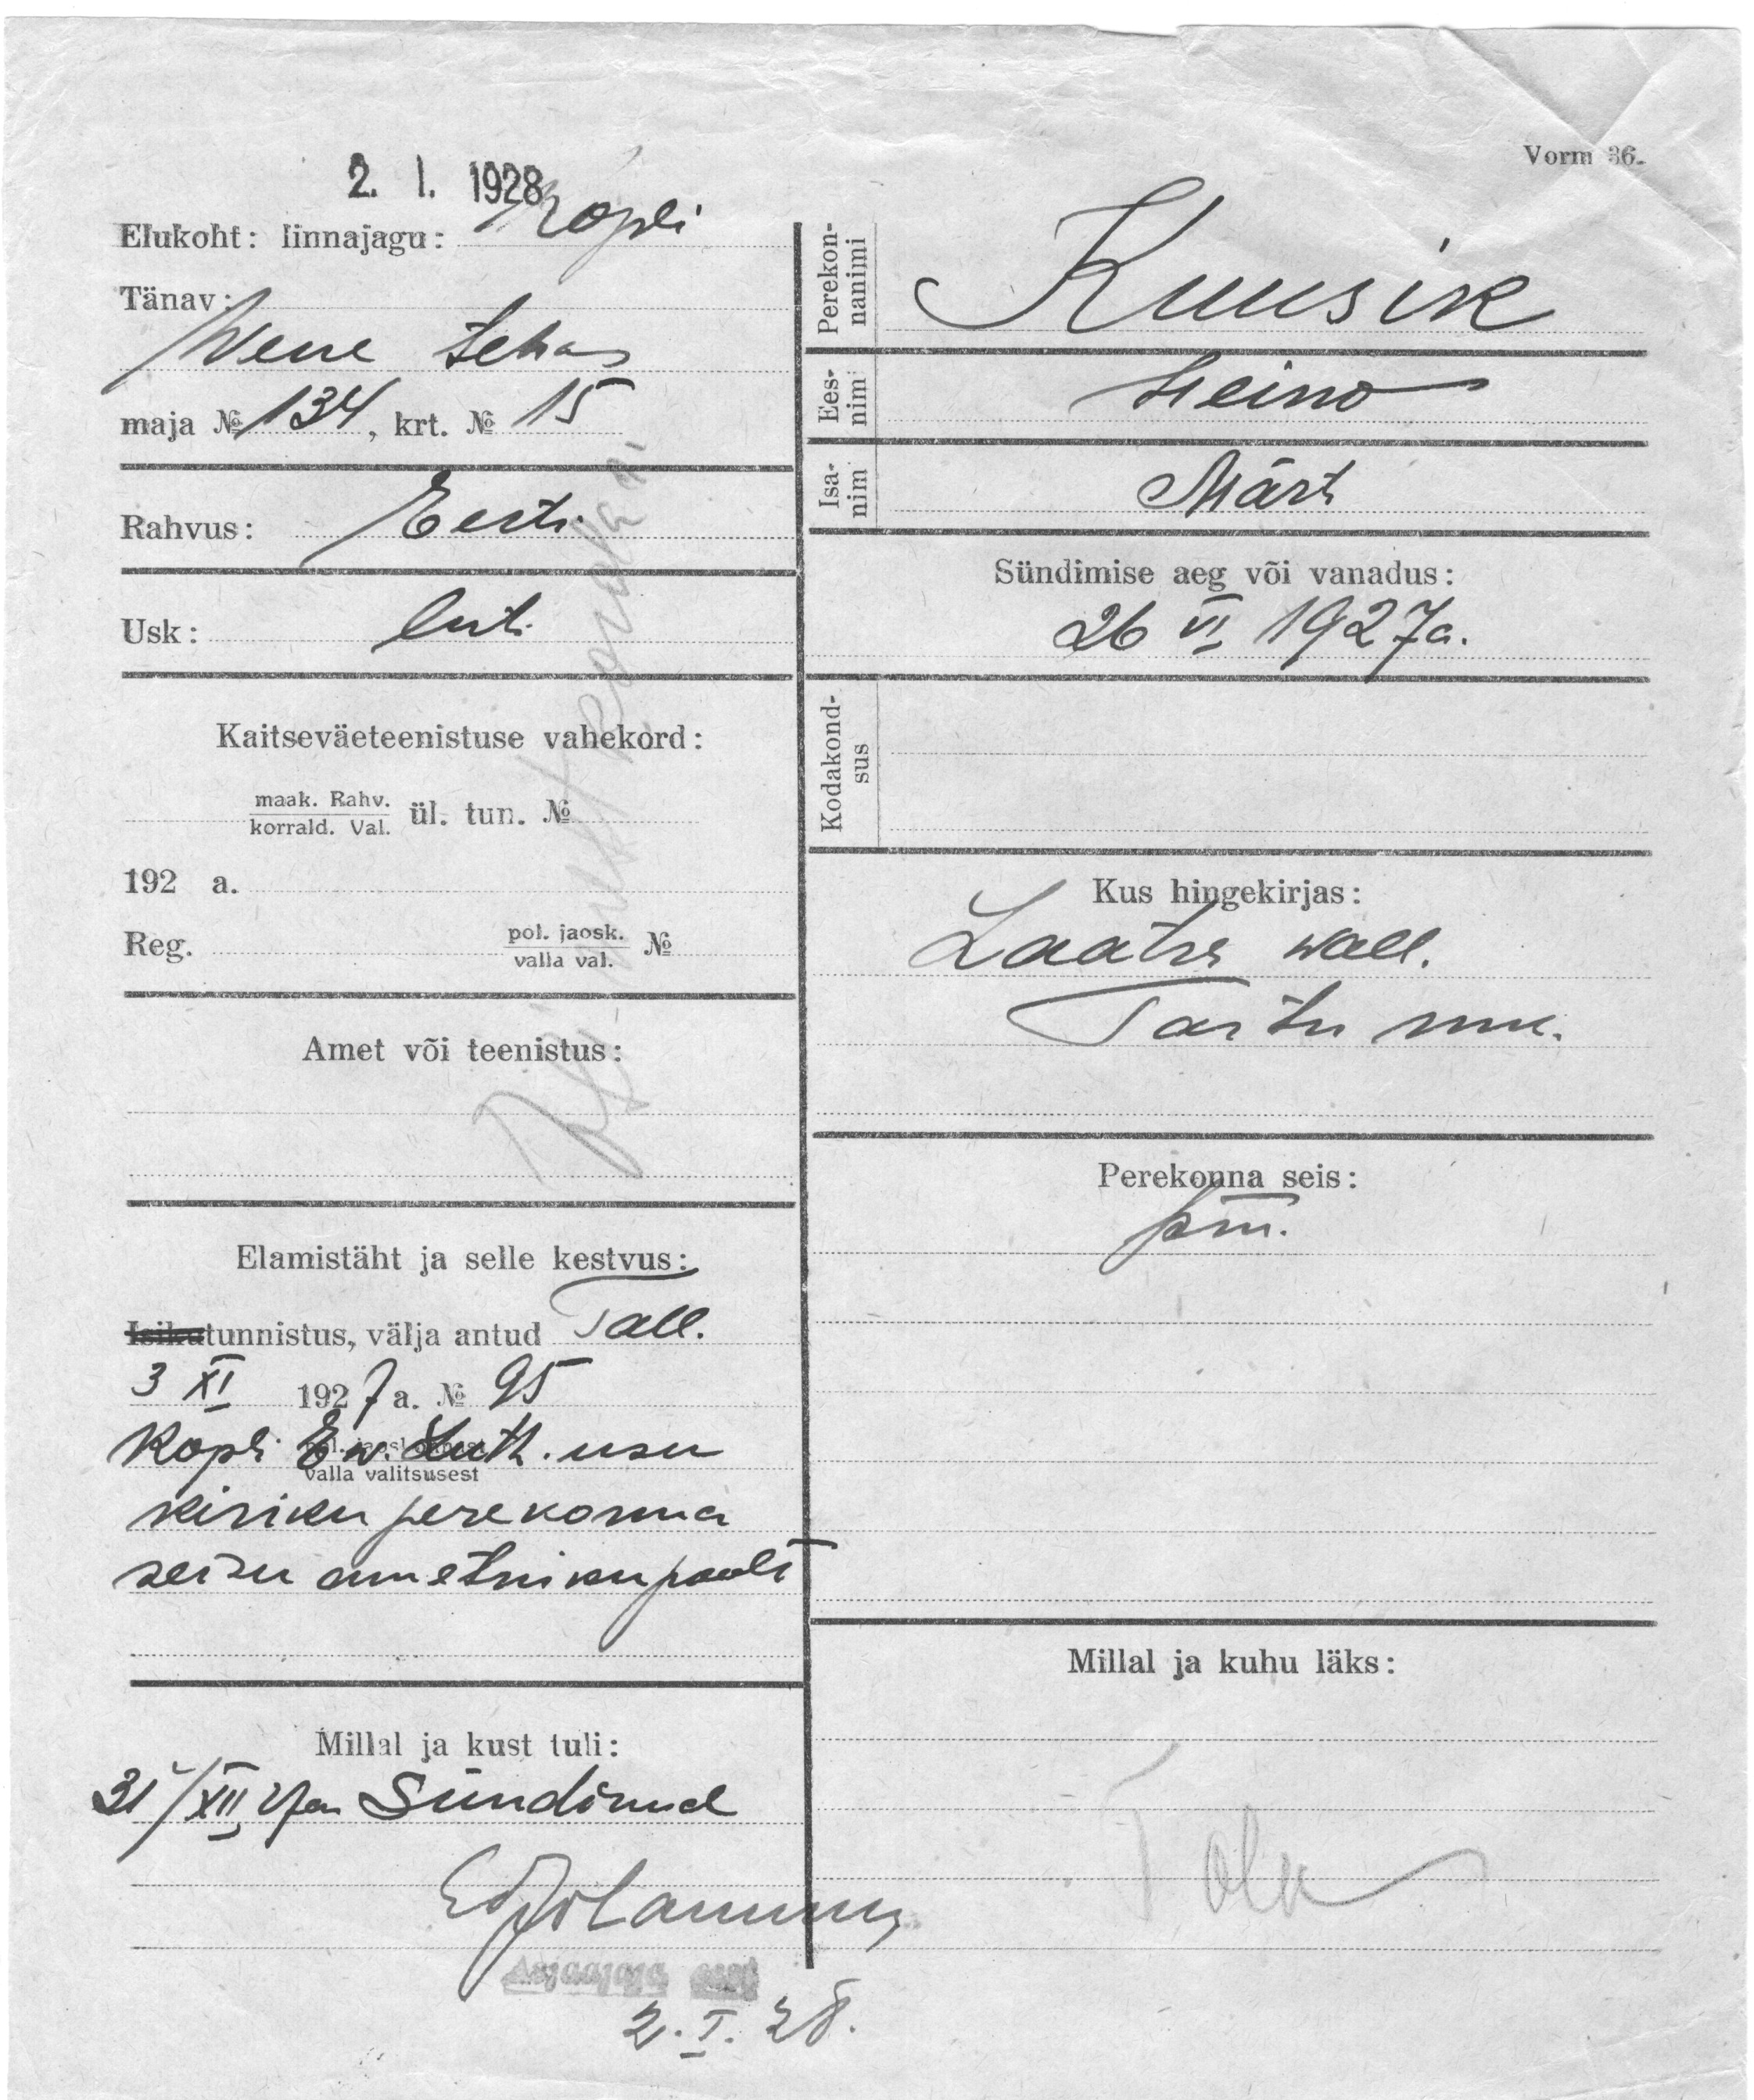 Vorm 36.
2. I. 1928
Elukoht: linnajagu: Kopli
Tänav:
Wene tehas
maja № 134, krt. № 15
Rahvus: Eesti
Usk: lut.
Kaitseväeteenistuse vahekord:
maak. Rahv.
korrald. Val. ül. tun. №
192 a.
Reg. pol. jaosk.
valla val. №
Amet või teenistus:
Elamistäht ja selle kestvus:
Isikutunnistus, välja antud Tall.
3 XI 1927 a. № 95
Kopli Ew. Luth. usu
valla valitsusest
kiriku perekonna
seisu ametniku poolt
Millal ja kust tuli:
31/XII 27a Sündinud
2. I. 28.
Perekonnanimi
Kuusik
Eesnimi
Heino
Isanimi
Märt
Sündimise aeg või vanadus:
26 VI 1927a.
Kodakondsus
Kus hingekirjas:
Laatre wall.
Tartu mk.
Perekonna seis:
Millal ja kuhu läks: